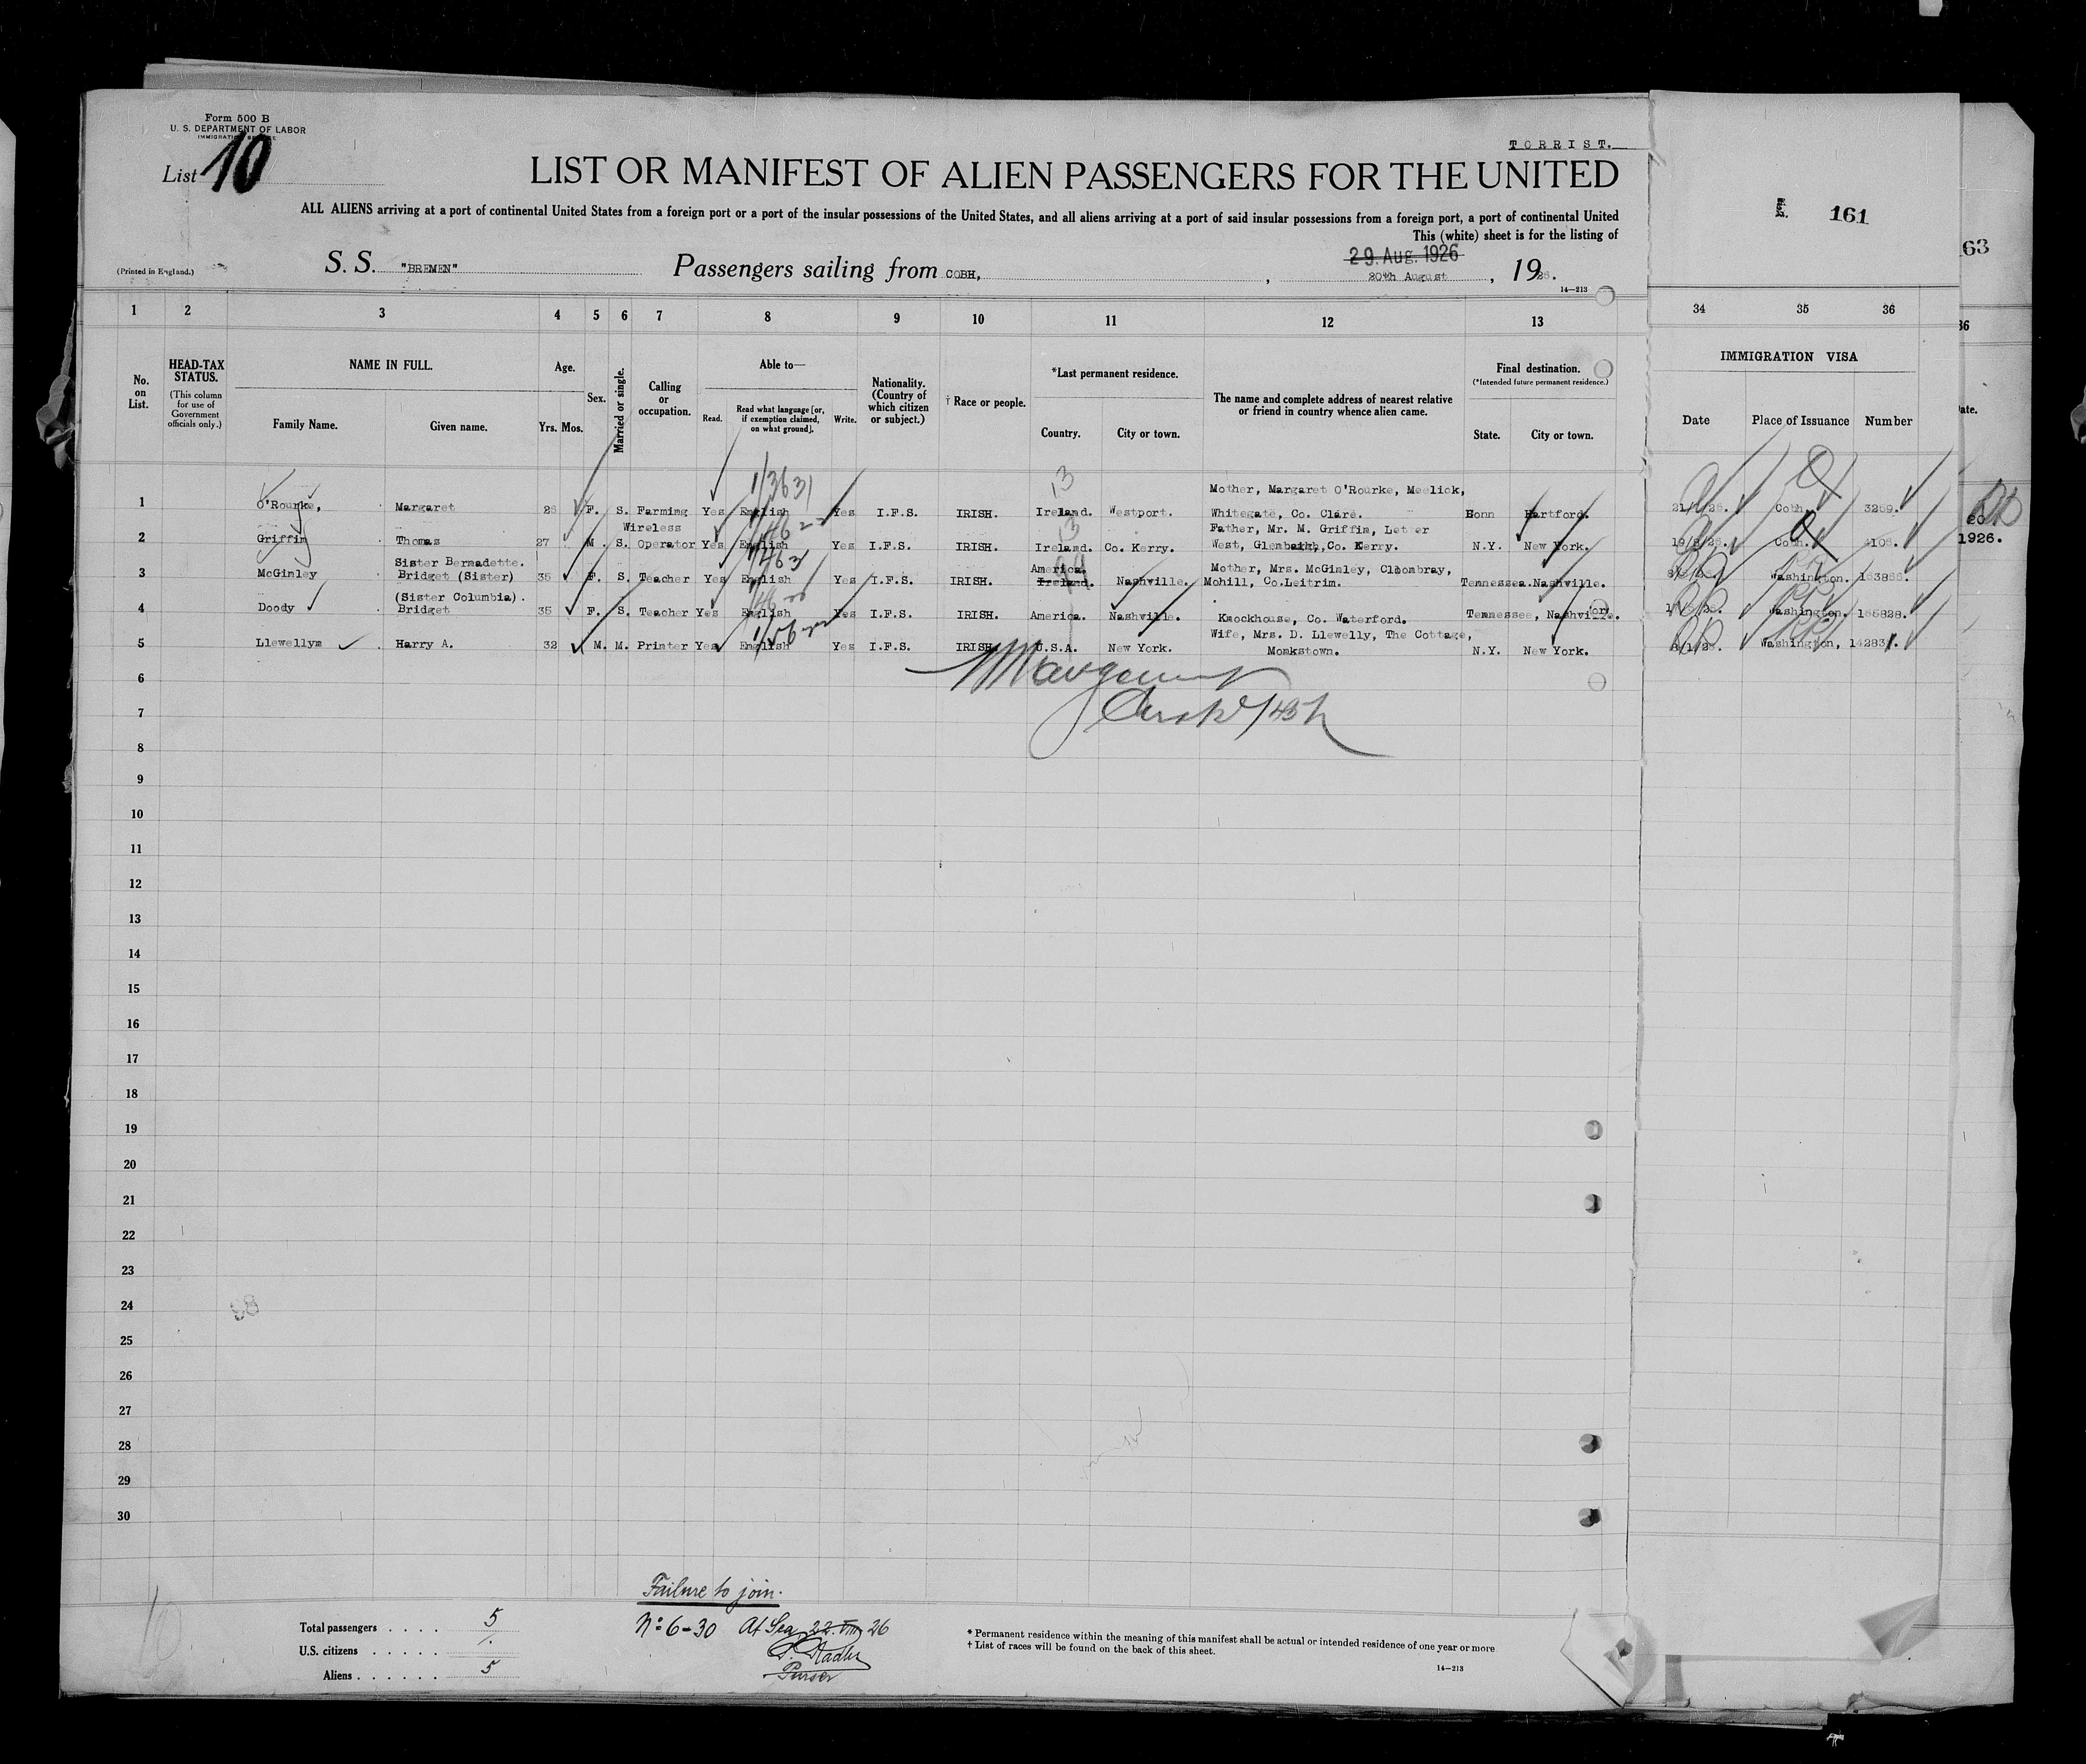 Form 500 B
U. S. DEPARTMENT OF LABOR
IMMIGRATION
List 10
TORRIST.
LIST OR MANIFEST OF ALIEN PASSENGERS FOR THE UNITED
ALL ALIENS arriving at a port of continental United States from a foreign port or a port of the insular possessions of the United States, and all aliens arriving at a port of said insular possessions from a foreign port, a port of continental United
This (white) sheet is for the listing of
(Printed in England.)
S. S. "BREMEN" Passengers sailing from COBH, 29. Aug. 1926
20th August, 1926.
14—213
161
63
1 2 3 4 5 6 7 8 9 10 11 12 13 34 35 36
36
No. on List.
HEAD-TAX STATUS.
(This column for use of Government officials only.)
NAME IN FULL.
Family Name. Given name.
Age.
Yrs. Mos.
Sex.
Married or single.
Calling or occupation.
Able to—
Read. Read what language [or, if exemption claimed, on what ground]. Write.
Nationality. (Country of which citizen or subject.)
† Race or people.
*Last permanent residence.
Country. City or town.
The name and complete address of nearest relative or friend in country whence alien came.
Final destination.
(*Intended future permanent residence.)
State. City or town.
IMMIGRATION VISA
Date Place of Issuance Number
Date.
Mother, Margaret O'Rourke, Meelick,
1 O'Rourke, Margaret F. S. Farming Yes English Yes I.F.S. IRISH. Ireland. Westport. Whitegate, Co. Clare. Conn Hartford. Cobh. 3259.
Wireless Father, Mr. M. Griffin, Letter
2 Griffin Thomas 27 M. S. Operator Yes English Yes I.F.S. IRISH. Ireland. Co. Kerry. West, Glenbeigh, Co. Kerry. N.Y. New York. Cobh. 4108.
Sister Bernadette. America. Mother, Mrs. McGinley, Cloombray,
3 McGinley Bridget (Sister) 35 F. S. Teacher Yes English Yes I.F.S. IRISH. Ireland. Nashville. Mohill, Co.Leitrim. Tennessea. Nashville. Washington. 153856.
(Sister Columbia).
4 Doody Bridget 35 F. S. Teacher Yes English Yes I.F.S. IRISH. America. Nashville. Knockhouse, Co. Waterford. Tennessee, Nashville. Washington. 155828.
Wife, Mrs. D. Llewelly, The Cottage,
5 Llewellyn Harry A. 32 M. M. Printer Yes English Yes I.F.S. IRISH. U.S.A. New York. Monkstown. N.Y. New York. Washington, 142831.
20
1926.
6
7
8
9
10
11
12
13
14
15
16
17
18
19
20
21
22
23
24
25
26
27
28
29
30
Failure to join.
No 6-30 At Sea 22.VIII 26
Purser
Total passengers . . . . 5
U.S. citizens . . . . .
Aliens . . . . . . 5
* Permanent residence within the meaning of this manifest shall be actual or intended residence of one year or more
† List of races will be found on the back of this sheet.
14—213